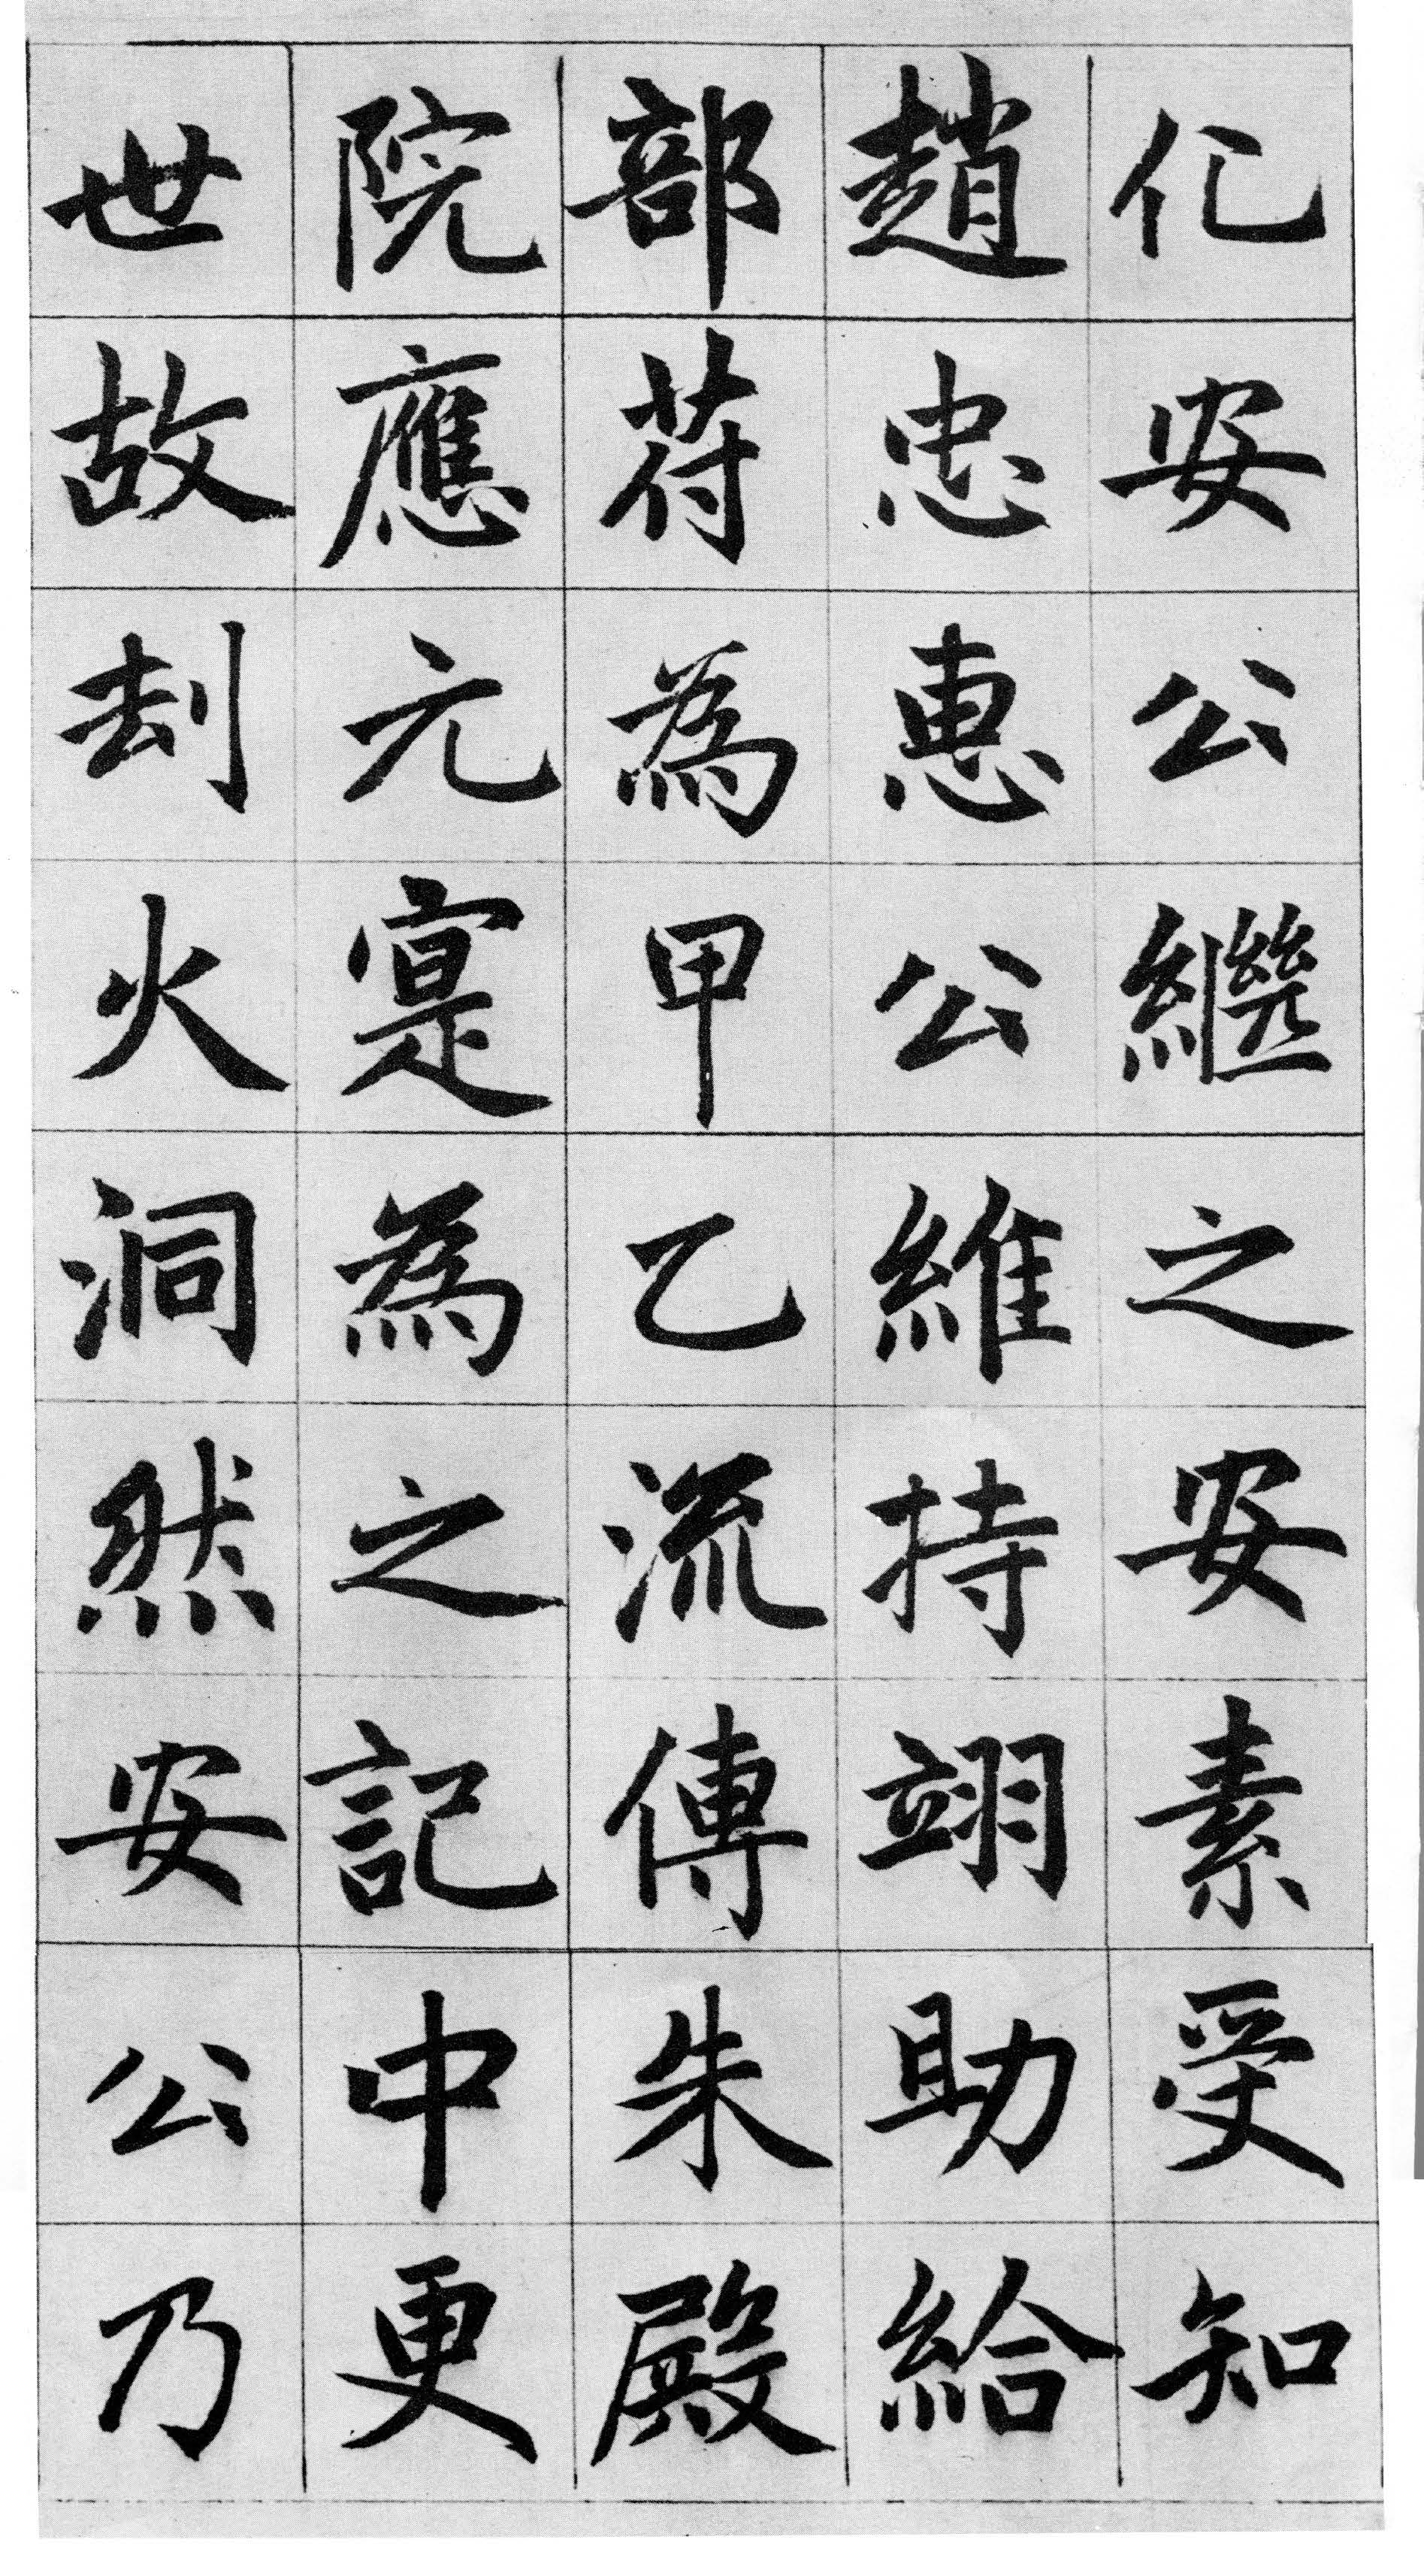 化安公繼之安素受知
趙忠惠公維持翊助給
部符為甲乙流傳朱殿
院應元寔為之記中更
世故刼火洞然安公乃